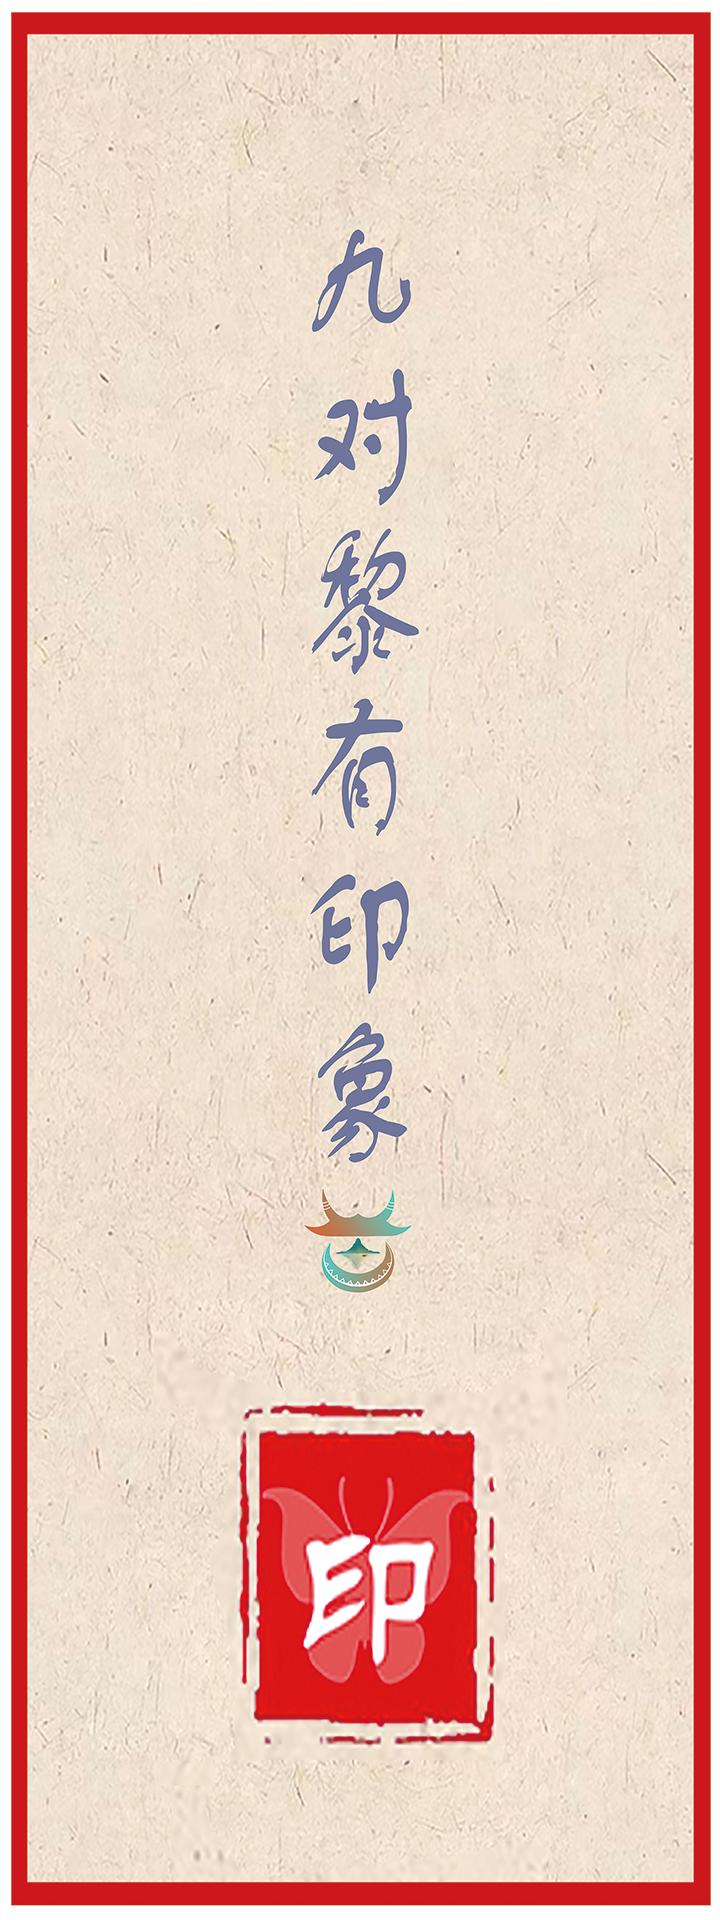 九对黎有印象
印